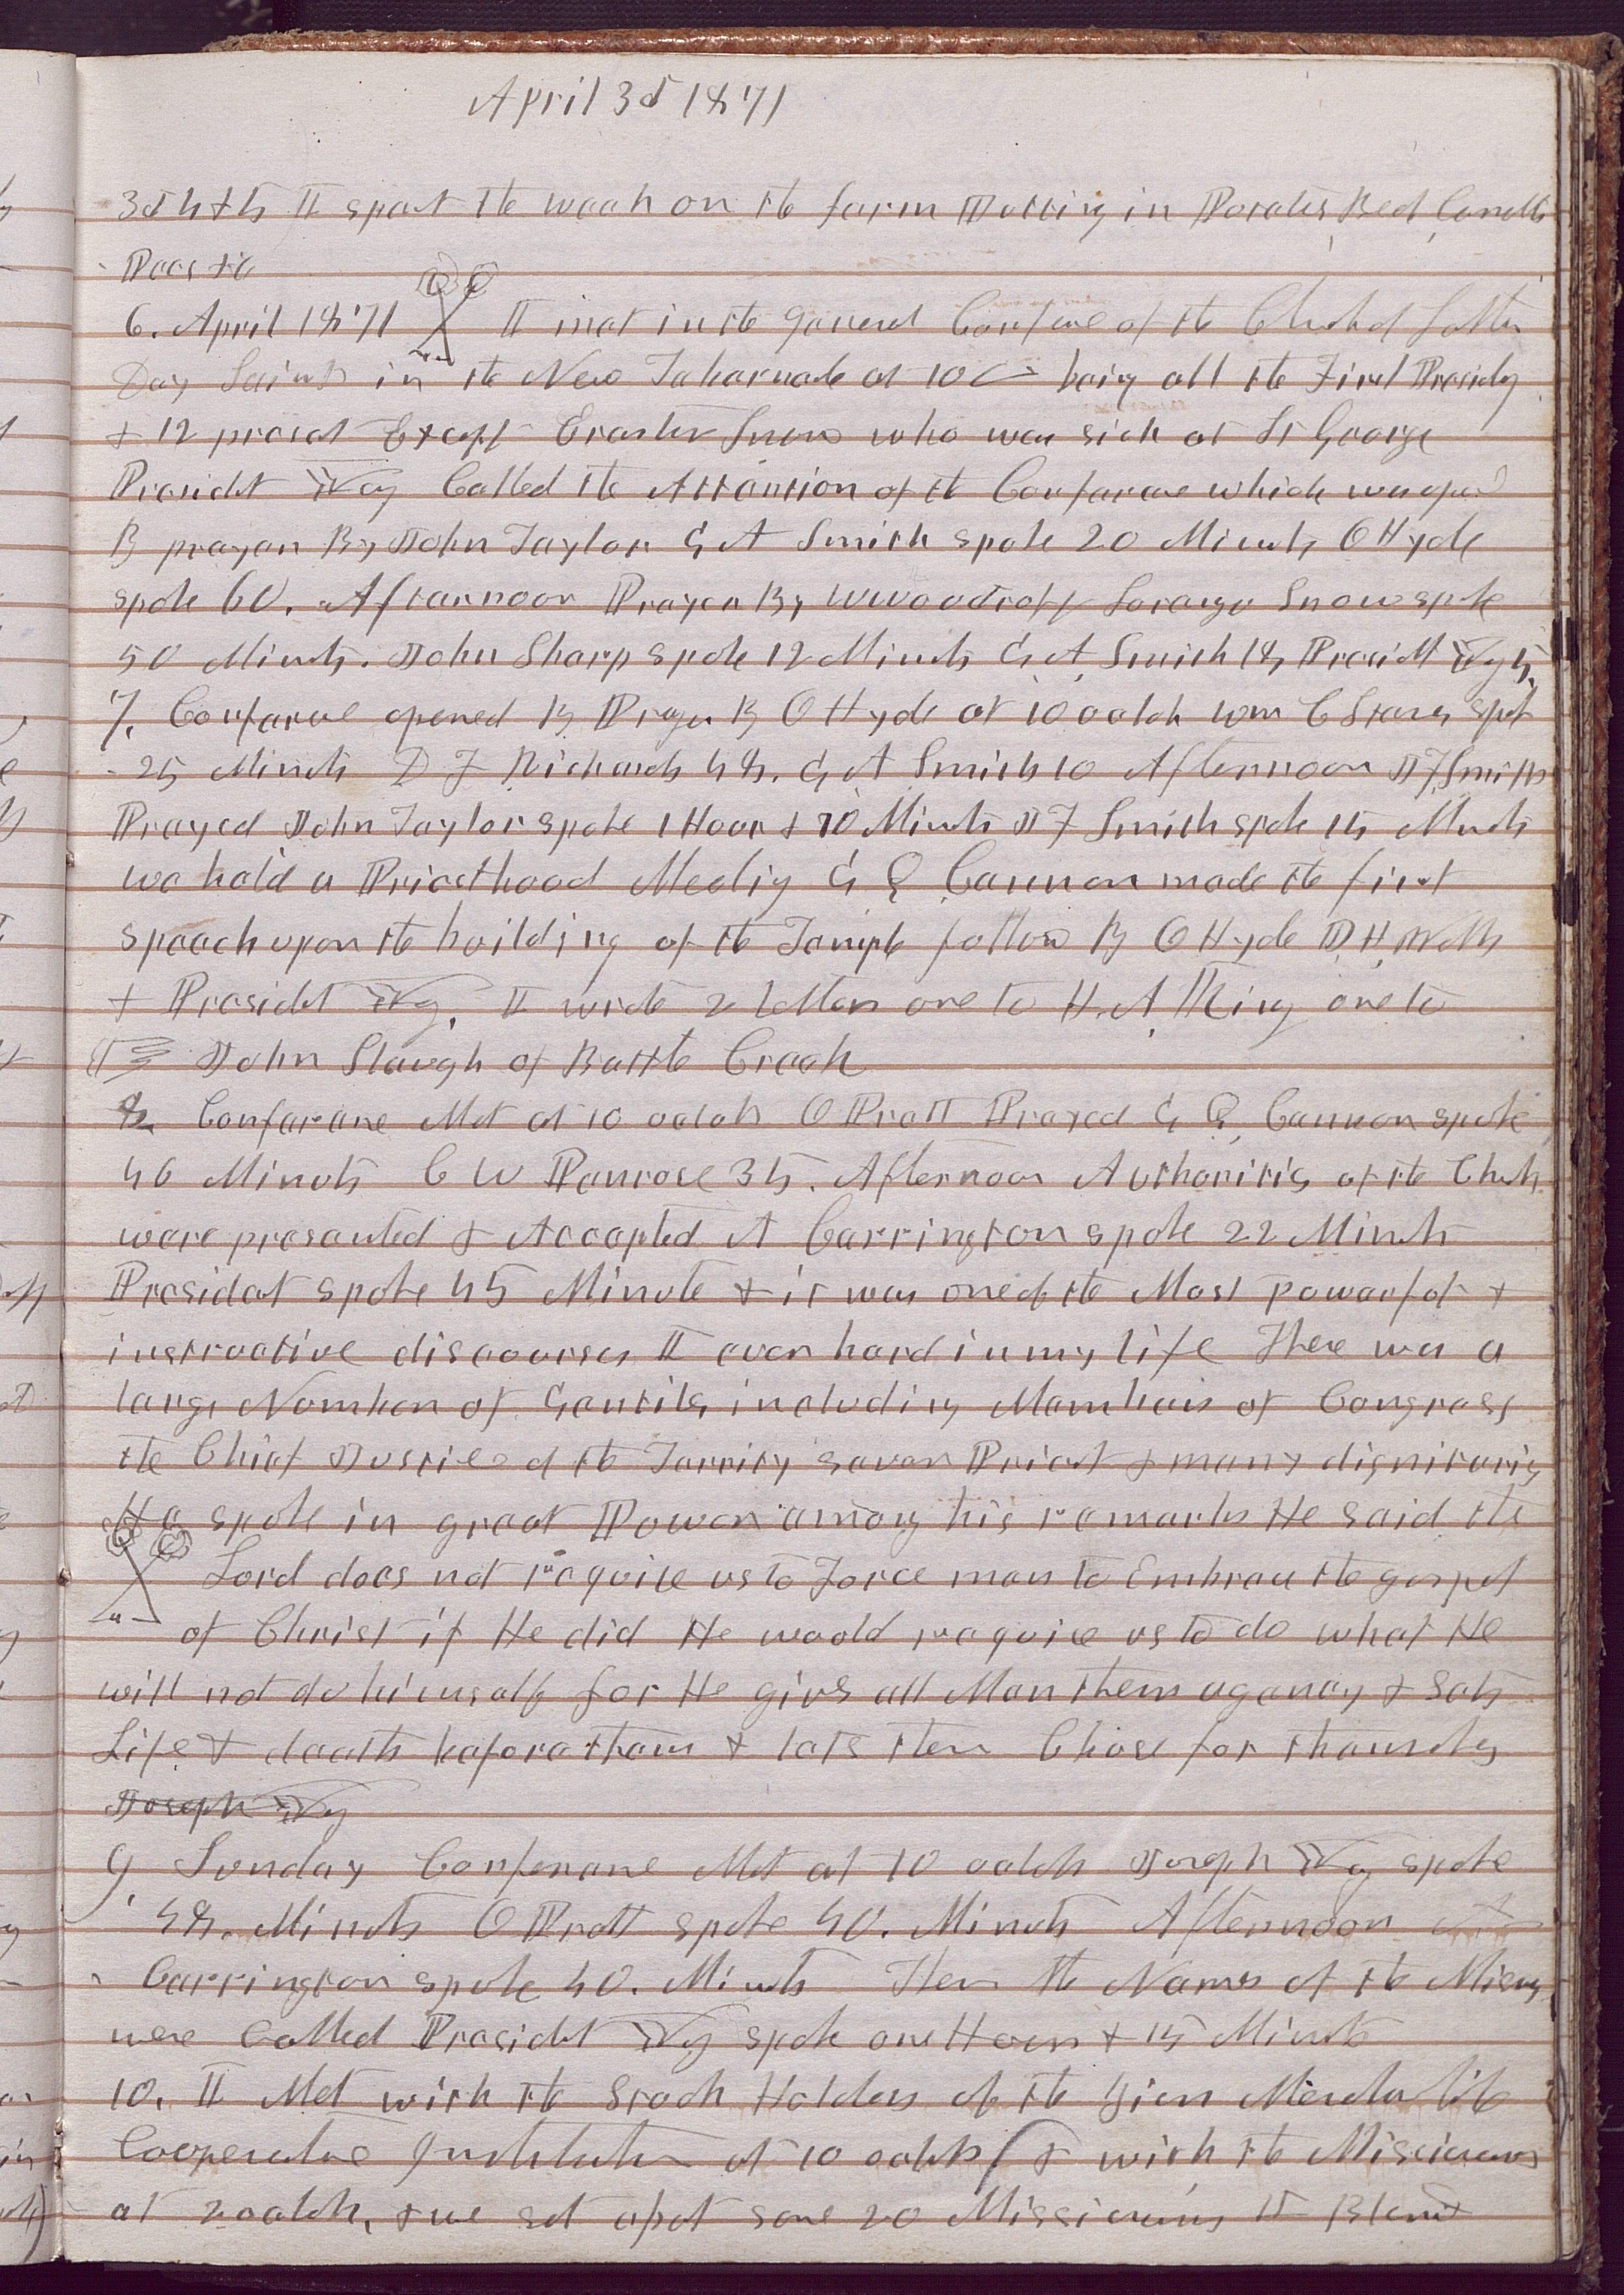 April 3d 1871
3d 4 & 5 I spent the week on the farm Putting in Potatoes Beet Carrotts
Peas &c
6. April 1871 I met in the general Confrence of the Church of Latter
Day Saints in the New Tabernacle at 10 being all the First Presidncy
+ 12 present Except Erastus Snow who was sick at St George
Presidet Yg Called the Attention of the Conference which was opend
By prayer By John Taylor G A Smith spoke 20 Minuts O Hyde
spoke 60. Afternoon Prayer By W Woodruff Lorenzo Snow spoke
50 Minuts. John Sharp spoke 12 Minuts G. A. Smith 18, Presidet Yg 5.
7. Conference opened By Prayer By O Hyde at 10 oclok Wm C Stains spok
25 Minuts D F Richards 48. G A Smith 10 Afternoon J F Smith
Prayed John Taylor spoke 1 Hour + 10 Minuts J F Smith spoke 15 Minuts
we held a Priesthood Meeting G Q Cannon made the first
speech upon the building of the Temple follow By O Hyde D. H. Wells
+ Presidet Yg. I wrote 2 letters one to H. A. King one to
John Slaugh of Battle Creek
8. Conferane Met at 10 oclok O Pratt Prayed G Q Cannon spoke
46 Minuts C W Penrose 35. Afternoon Authorities of the Chuch
were presented & Accepted A Carrington spoke 22 Minuts
President spoke 45 Minute + it was one of the Most powerful +
instructive discourses I ever hard in my life There was a
large Number of Gentiles, including Members of Congress
the Chief Justice of the Territry seven Priest + many dignitaries
He spoke in great Power among his remarks He said the
Lord does not require us to Force men to Embrace the gospel
of Christ if He did He would require us to do what He
will not do himself for He givs all Men them agancy + sets
Life & death before them + lets them Chose for themselves
Joseph Yg
9 Sunday Conferane Met at 10 oclok Joseph Yg spoke
48. Minuts O Pratt spoke 40. Minuts Afternoon A
Carrington spoke 40. Minuts Then the Names of the Misins
were Called Presidet Yg spoke one Hour + 15 Minuts
10. I Met with the Stock Holders of the Zion Mercantile
Cooperative Institution at 10 oclok & with the Missionaries
at 2 oclok, + we set apart some 20 Missionaries I Blessed